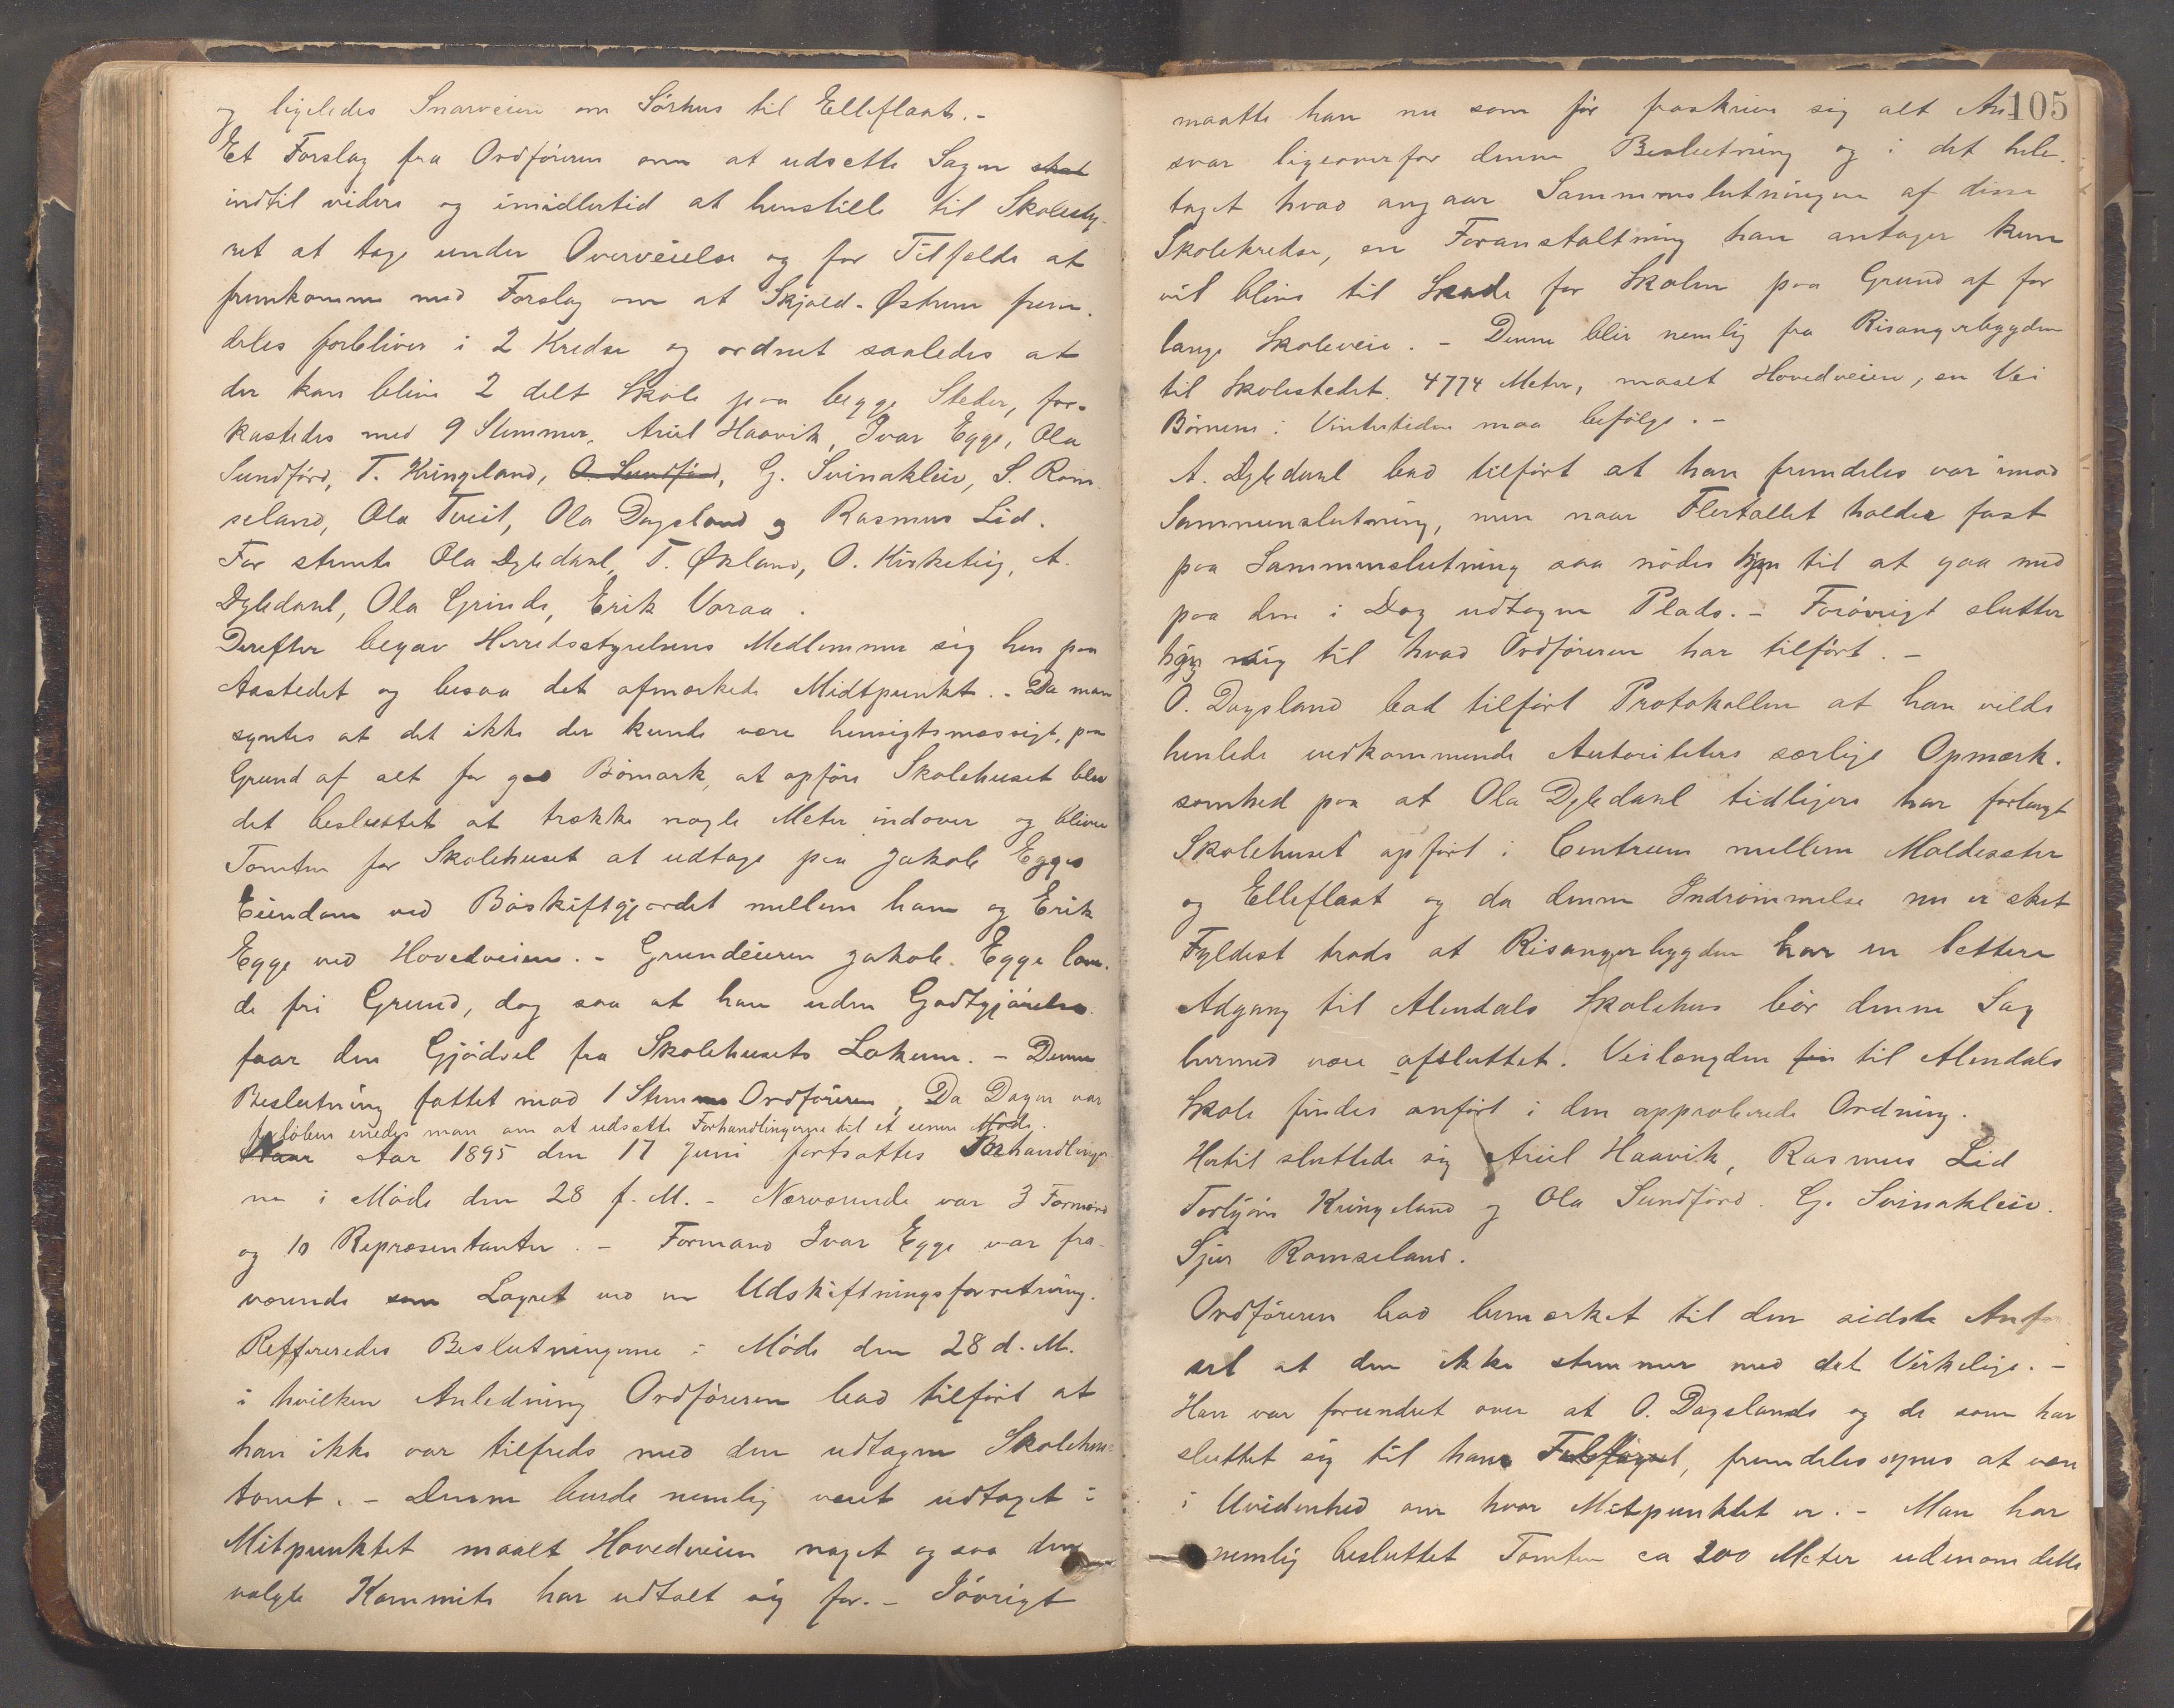 og ligeledes Snarveien om Sörhus til Elleflaat. -
Et Forslag fra Ordföreren om at udsette Sagen skat
indtil videre og imidlertid at henstille til Skolesty-
ret at tage under Overveielse og for Tilfælde at
fremkomme med Forslag om at Skjold-Østrem frem-
deles forbliver i 2 Kredse og ordnet saaledes at
der kan blive 2 delt Skole paa begge Steder, for-
kastedes med 9 Stemmer, Ariel Haavik, Ivar Egge, Ola
Sundförd, T. Kringeland, O. Sundförd, G. Svinakleiv, S. Rom
seland, Ola Tveit, Ola Dagsland og Rasmus Lid.
For stemte Ola Dybdahl, T. Økland, O. Kirketeig, A.
Dybdahl, Ola Grinde, Erik Varaa.
Derefter begav Herredsstyrelsens Medlemmer sig hen paa
Aastedet og besaa det afmærkede Midtpunkt. - Da man
syntes at det ikke der kunde være hensigtsmæssigt, paa
Grund af alt for god Bömark, at opföre Skolehuset blev
det besluttet at trække nogle Meter indover og bliver
Tomten for Skolehuset at udtage paa Jakob Egges
Eiendom ved Böskiftgjærdet mellem ham og Erik
Egge ved Hovedveien. - Grundeieren Jakob Egge lov-
de fri Grund, dog saa at han uden Godtgjörelse
faar den Gjödsel fra Skolehusets Lokum. - Denne
Beslutning fattet mod 1 Stemme Ordföreren, Da Dagen var
forlöben enedes man om at udsætte Forhandlingerne til et senere Möde.
Aar 1895 den 17 Juni fortsattes Forhandlinger
ne i Möde den 28 f. M. - Nærværende var 3 Formænd
og 10 Repræsentanter. - Formand Ivar Egge var fra-
værende som Lagret ved en Udskiftningsforretning.
Reffereredes Beslutningerne i Möde den 28 d. M.
i hvilken Anledning Ordföreren bad tilfört at
han ikke var tilfreds med den udtagne Skolehus
tomt. - Denne burde nemlig været udtaget i
Mitpunktet maalt Hovedveien noget ogsaa den
valgte Kommite har udtalt sig for. - Iövrigt
105
maatte han nu som för fraskrive sig alt An-
svar ligeoverfor denne Beslutning og i det hele-
taget hvad angaar Sammenslutningen af disse
Skolekredse, en Foranstaltning han antager kun
vil blive til Skade for Skolen paa Grund af for
lange Skoleveie. - Denne blir nemlig fra Risangerbygden
til Skolestedet 4774 Meter, maalt Hovedveien, en Vei
Börnene i Vintertiden maa befölge. -
A. Dybdahl bad tilfört at han fremdeles var imod
Sammenslutning, men naar Flertallet holder fast
paa Sammenslutning saa nödes han til at gaa med
paa den i Dag udtagne Plads. - Forövrigt slutter
han sig til hvad Ordföreren har tilfört. -
O. Dagsland bad tilfört Protokollen at han vilde
henlede vedkommende Autoriteters særlige Opmærk-
somhed paa at Ola Dybdahl tidligere har forlangt
Skolehuset opfört i Centrum mellem Moldesæter
og Elleflaat og da denne Indrömmelse nu er sket
Fyldest trods at Risangerbygden har en lettere
Adgang til Alendals Skolehus bör denne Sag
hermed være afsluttet. Veilængden fin til Alendals
Skole findes anfört i den approberede Ordning.
Hertil sluttede sig Ariel Haavik, Rasmus Lid
Torbjörn Kringeland og Ola Sundförd. G. Svinakleiv.
Sjur Romseland.
Ordföreren bad bemærket til den sidste Anför
sel at den ikke stemmer med det Virkelige. -
Han var forundret over at O. Dagslands og de som har
sluttet sig til hans, fremdeles synes at være
i Uvidenhed om hvor Mitpunktet er. - Man har
nemlig besluttet Tomten ca 200 Meter udenom dette